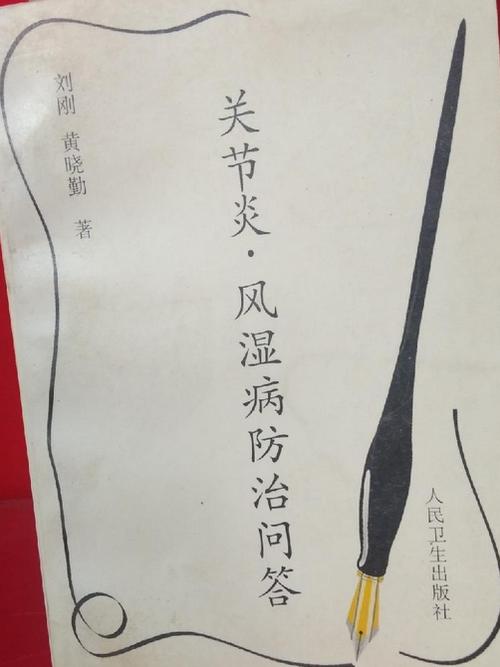 刘刚 黄晓勤 著
关节炎·风湿病防治问答
人民卫生出版社